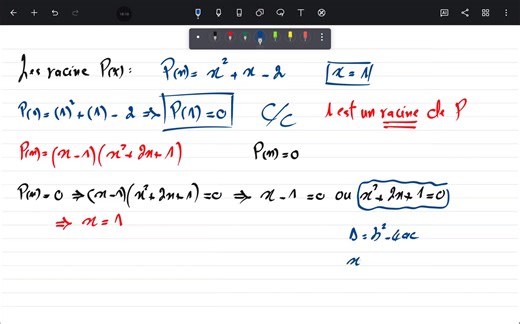 Les racine P(x): P(x) = x² + x - 2 x = 1
P(1) = (1)² + (1) - 2 ⇒ P(1) = 0 C/C 1 est un racine de P
P(x) = (x-1)(x²+2x+1) P(x) = 0
P(x) = 0 ⇒ (x-1)(x²+2x+1) = 0 ⇒ x - 1 = 0 ou x² + 2x + 1 = 0
⇒ x = 1
Δ = b² - 4ac
x